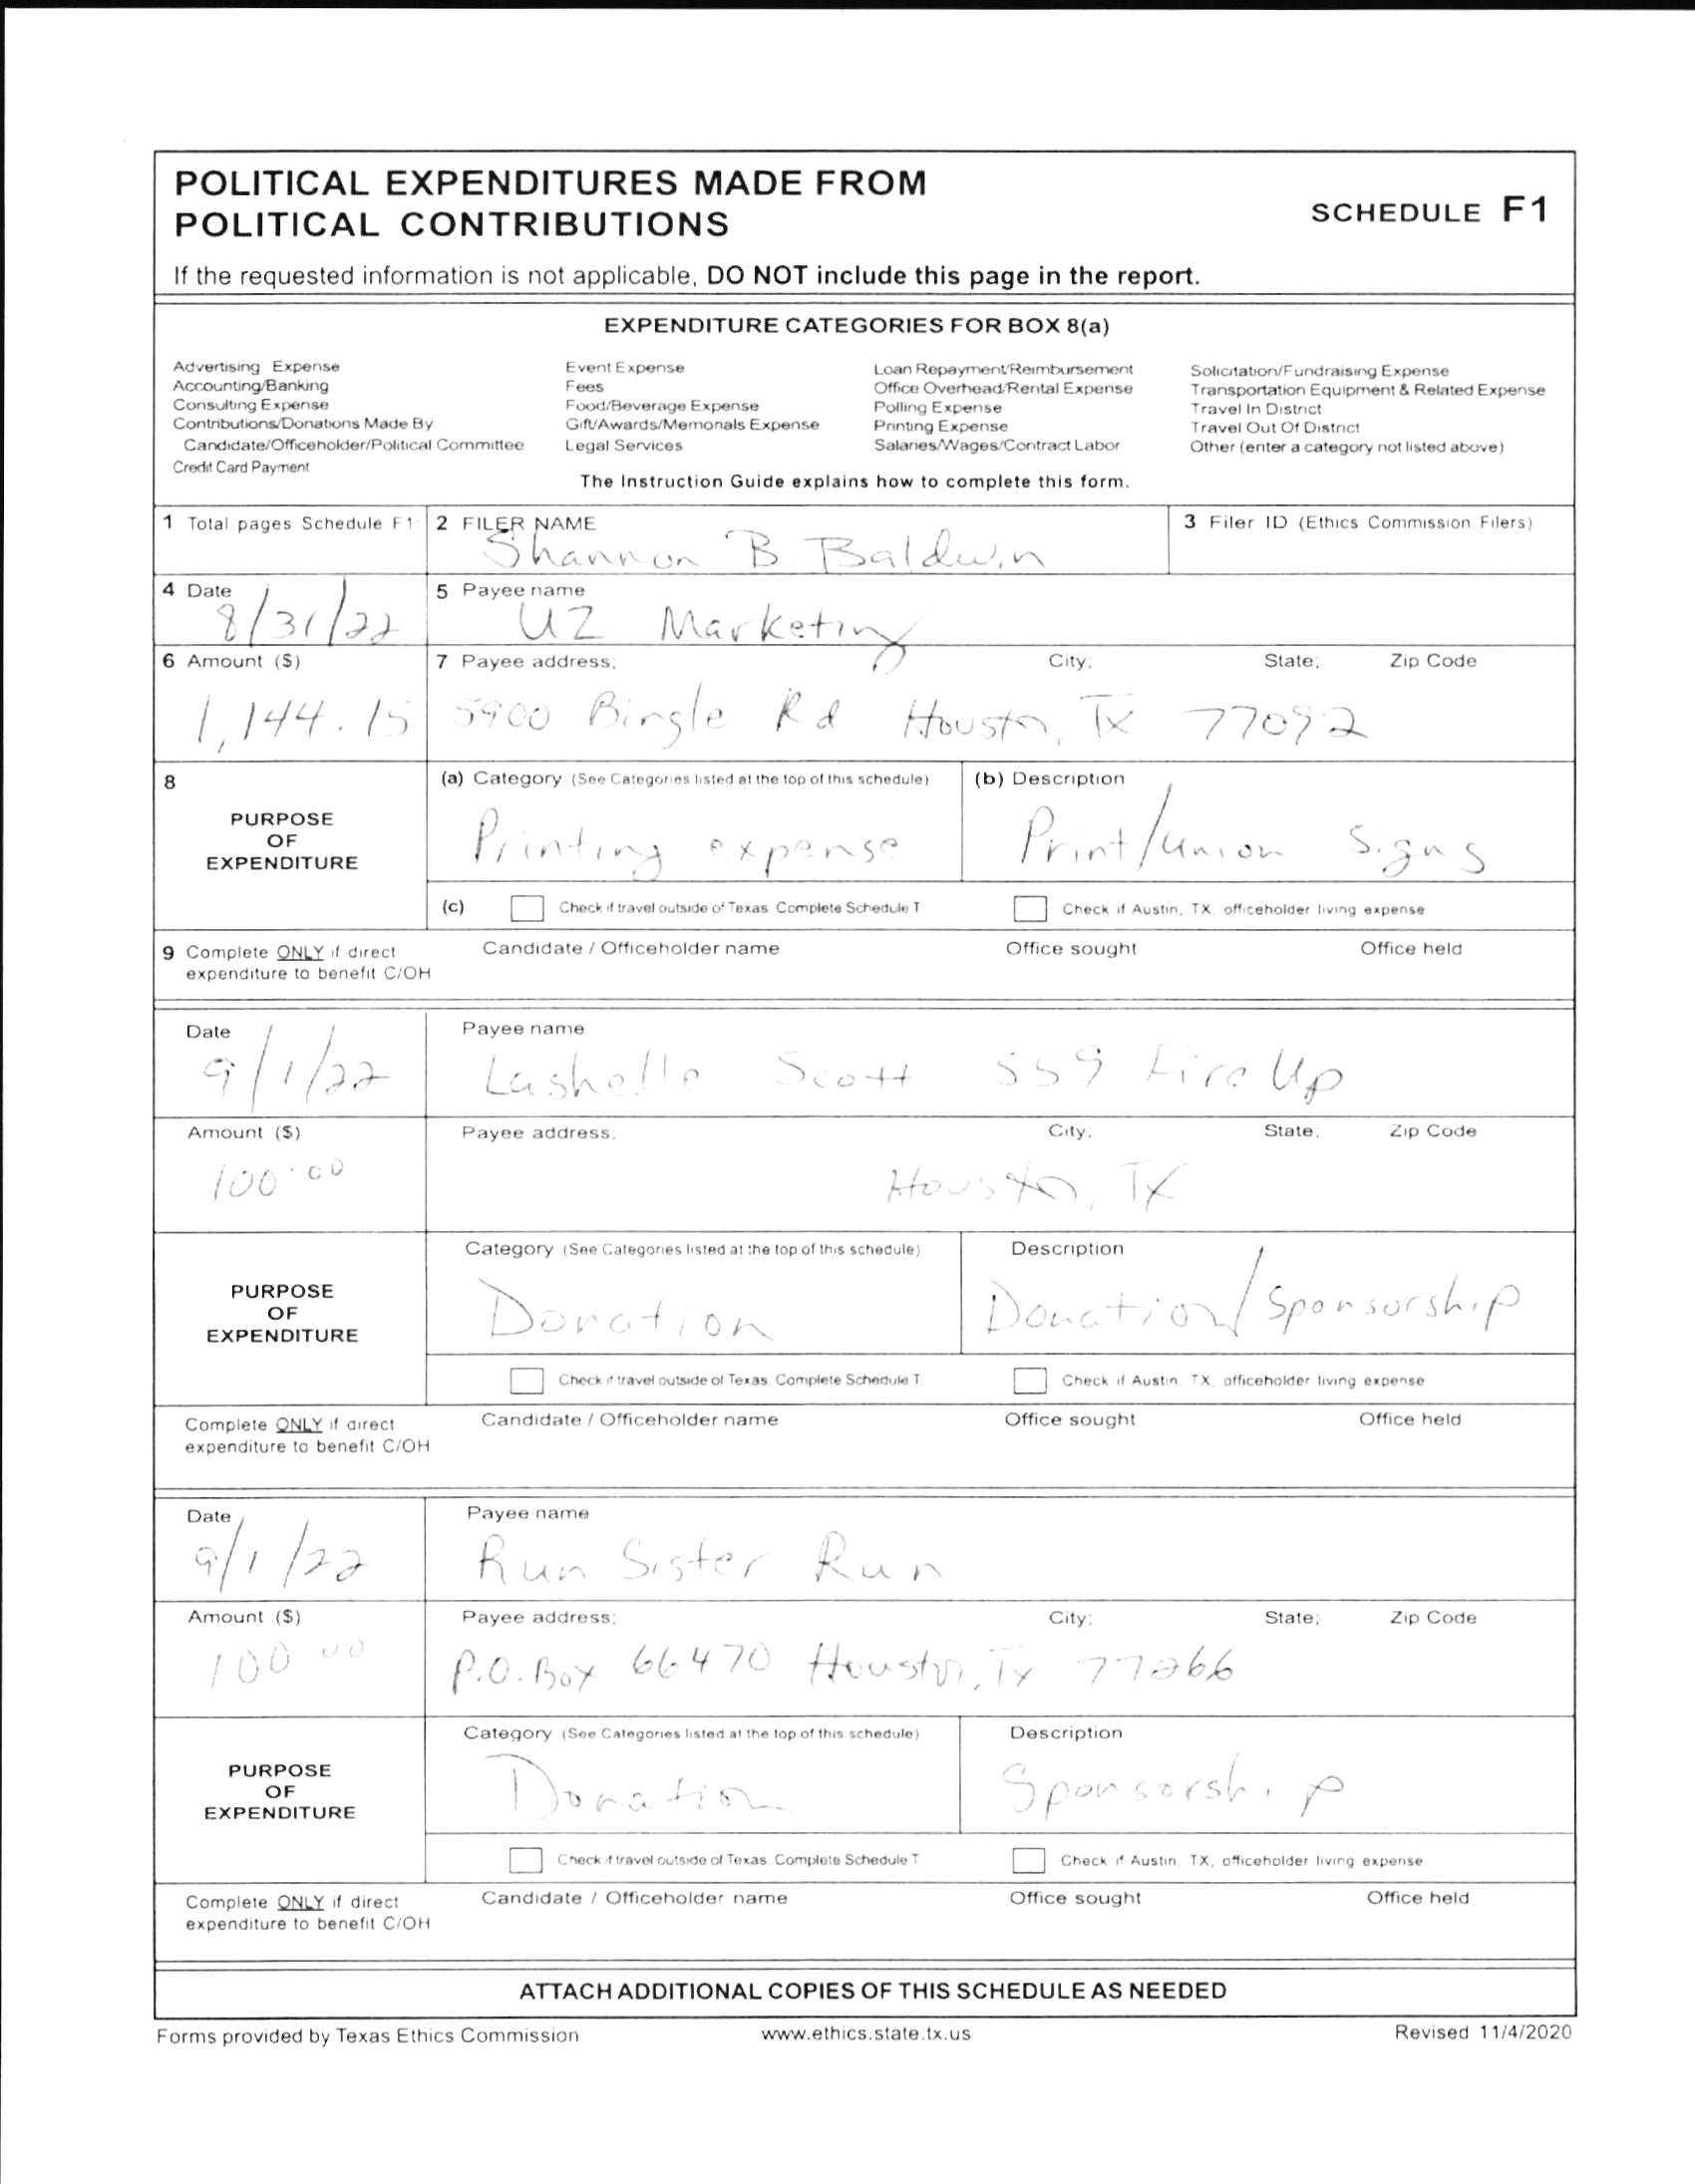 POLITICAL EXPENDITURES MADE FROM
POLITICAL CONTRIBUTIONS
SCHEDULE F1
If the requested information is not applicable, DO NOT include this page in the report.
EXPENDITURE CATEGORIES FOR BOX 8(a)
Advertising Expense Event Expense Loan Repayment/Reimbursement Solicitation/Fundraising Expense
Accounting/Banking Fees Office Overhead/Rental Expense Transportation Equipment & Related Expense
Consulting Expense Food/Beverage Expense Polling Expense Travel In District
Contributions/Donations Made By Gift/Awards/Memorials Expense Printing Expense Travel Out Of District
Candidate/Officeholder/Political Committee Legal Services Salaries/Wages/Contract Labor Other (enter a category not listed above)
Credit Card Payment
The Instruction Guide explains how to complete this form.
1 Total pages Schedule F1 2 FILER NAME 3 Filer ID (Ethics Commission Filers)
Shannon B Baldwin
4 Date 5 Payee name
8/31/22 UZ Marketing
6 Amount ($) 7 Payee address; City; State; Zip Code
1,144.15 5900 Bingle Rd Houston, Tx 77092
8 (a) Category (See Categories listed at the top of this schedule) (b) Description
PURPOSE
OF
EXPENDITURE
Printing expense Print/union signs
(c) Check if travel outside of Texas Complete Schedule T Check if Austin, TX officeholder living expense
9 Complete ONLY if direct Candidate / Officeholder name Office sought Office held
expenditure to benefit C/OH
Date Payee name
9/1/22 Lashelle Scott 559 Fire Up
Amount ($) Payee address; City; State; Zip Code
100.00 Houston, TX
Category (See Categories listed at the top of this schedule) Description
PURPOSE
OF
EXPENDITURE
Donation Donation/Sponsorship
Check if travel outside of Texas Complete Schedule T Check if Austin TX, officeholder living expense
Complete ONLY if direct Candidate / Officeholder name Office sought Office held
expenditure to benefit C/OH
Date Payee name
9/1/22 Run Sister Run
Amount ($) Payee address; City; State; Zip Code
100 00 P.O. Box 66470 Houston, Tx 77266
Category (See Categories listed at the top of this schedule) Description
PURPOSE
OF
EXPENDITURE
Donation Sponsorship
Check if travel outside of Texas Complete Schedule T Check if Austin TX, officeholder living expense
Complete ONLY if direct Candidate / Officeholder name Office sought Office held
expenditure to benefit C/OH
ATTACH ADDITIONAL COPIES OF THIS SCHEDULE AS NEEDED
Forms provided by Texas Ethics Commission www.ethics.state.tx.us Revised 11/4/2020